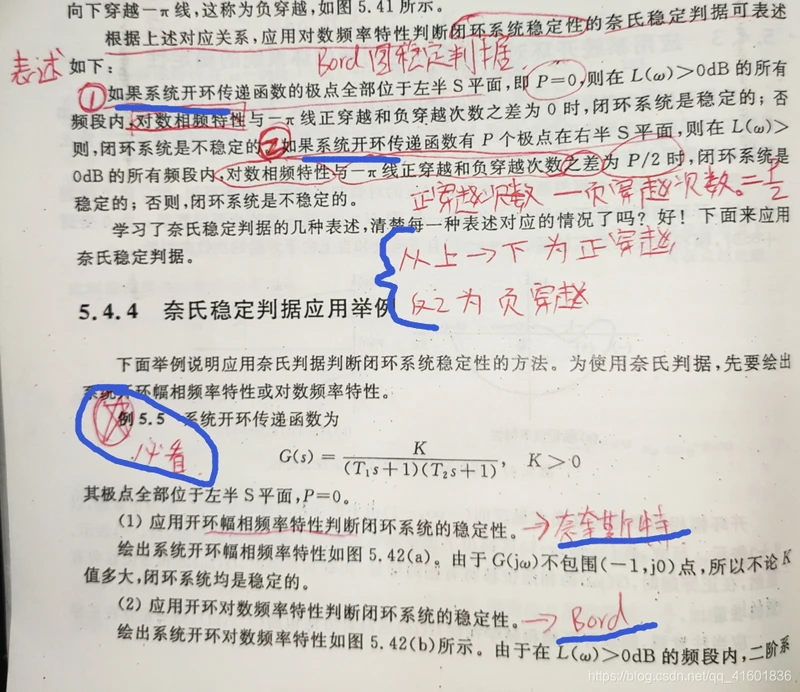 向下穿越一π线，这称为负穿越，如图5.41所示。
根据上述对应关系，应用对数频率特性判断闭环系统稳定性的奈氏稳定判据可表述
表述
如下：
Bord图稳定判据
① 如果系统开环传递函数的极点全部位于左半S平面，即P=0，则在L(ω)>0dB的所有
频段内，对数相频特性与一π线正穿越和负穿越次数之差为0时，闭环系统是稳定的；否
则，闭环系统是不稳定的。② 如果系统开环传递函数有P个极点在右半S平面，则在L(ω)>
0dB的所有频段内，对数相频特性与一π线正穿越和负穿越次数之差为P/2时，闭环系统是
稳定的；否则，闭环系统是不稳定的。
正穿越次数 一 负穿越次数 = P/2
学习了奈氏稳定判据的几种表述，清楚每一种表述对应的情况了吗？好！下面来应用
奈氏稳定判据。
从上→下为正穿越
反之为负穿越
5.4.4 奈氏稳定判据应用举例
下面举例说明应用奈氏判据判断闭环系统稳定性的方法。为使用奈氏判据，先要绘出
系统开环幅相频率特性或对数频率特性。
例5.5 系统开环传递函数为
必看
G(s)=K/((T₁s+1)(T₂s+1)), K>0
其极点全部位于左半S平面，P=0。
(1) 应用开环幅相频率特性判断闭环系统的稳定性。→奈奎斯特
绘出系统开环幅相频率特性如图5.42(a)。由于G(jω)不包围(-1,j0)点，所以不论K
值多大，闭环系统均是稳定的。
(2) 应用开环对数频率特性判断闭环系统的稳定性。→Bord
绘出系统开环对数频率特性如图5.42(b)所示。由于在L(ω)>0dB的频段内，二阶系
https://blog.csdn.net/qq_41601836